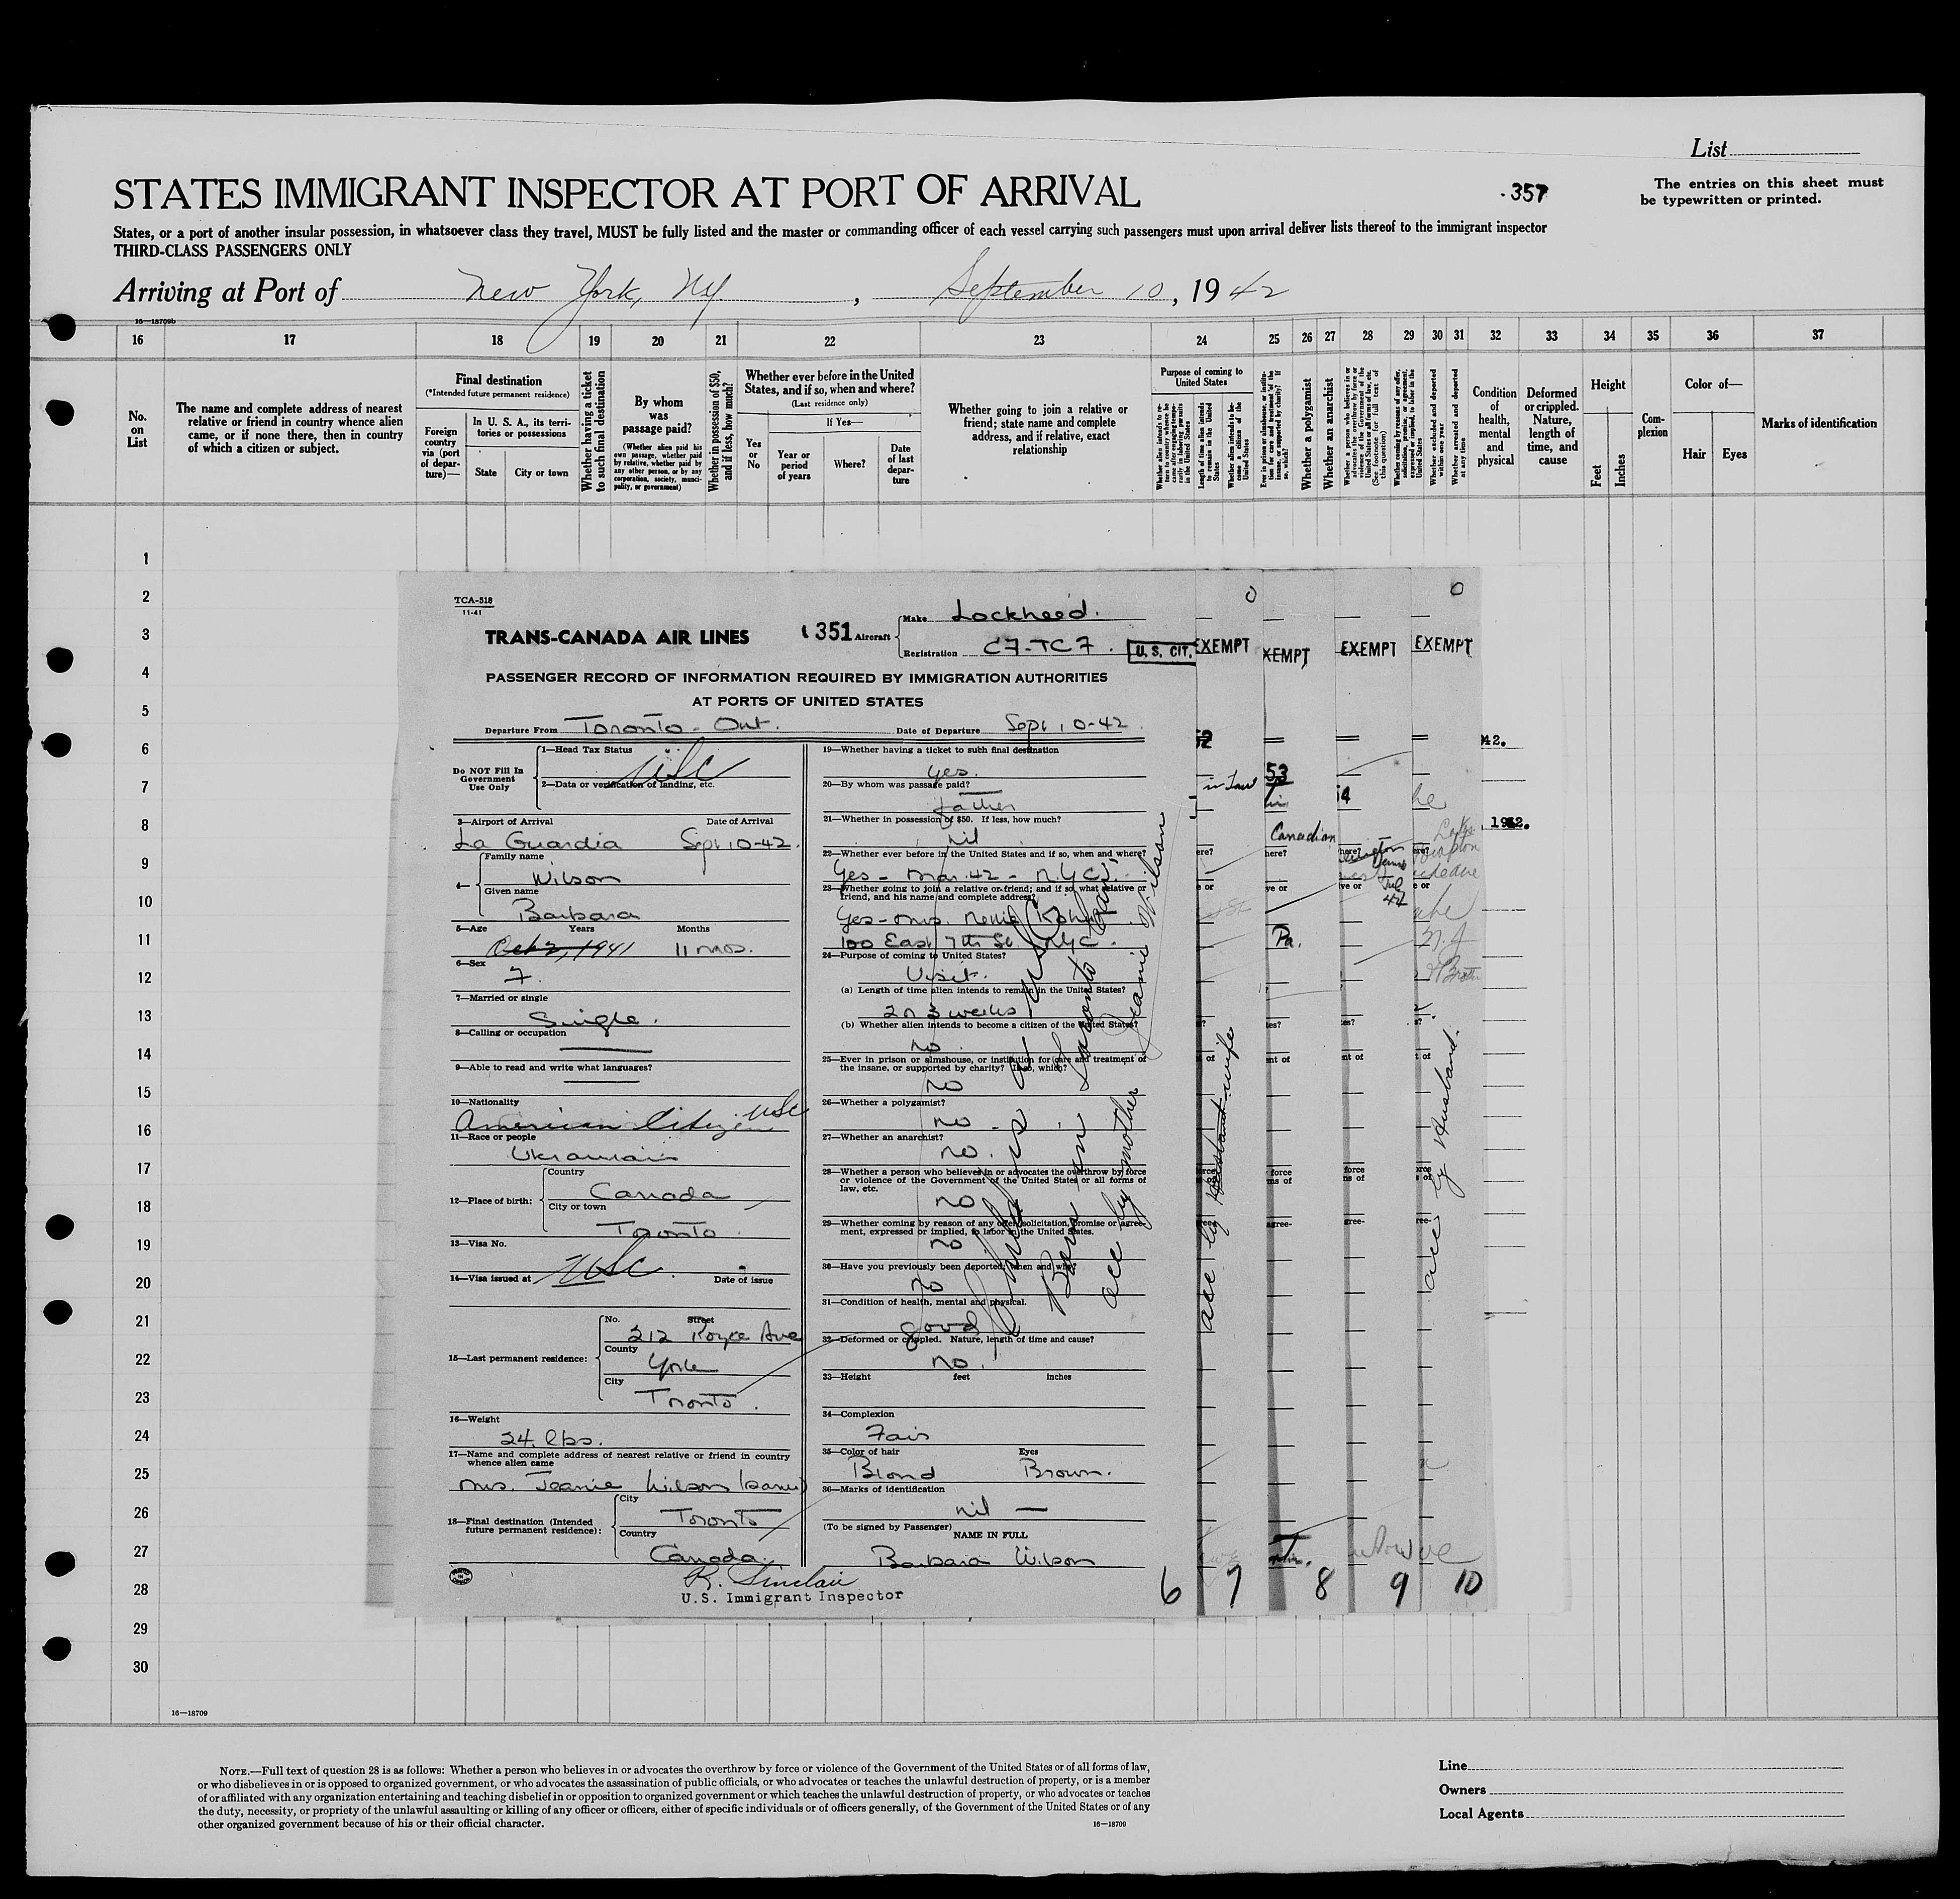 List
STATES IMMIGRANT INSPECTOR AT PORT OF ARRIVAL
357
The entries on this sheet must
be typewritten or printed.
States, or a port of another insular possession, in whatsoever class they travel, MUST be fully listed and the master or commanding officer of each vessel carrying such passengers must upon arrival deliver lists thereof to the immigrant inspector
THIRD-CLASS PASSENGERS ONLY
Arriving at Port of New York, NY, September 10, 1942
16—18709b
16 17 18 19 20 21 22 23 24 25 26 27 28 29 30 31 32 33 34 35 36 37
No. on List
The name and complete address of nearest relative or friend in country whence alien came, or if none there, then in country of which a citizen or subject.
Final destination
(*Intended future permanent residence)
Foreign country via (port of departure)—
In U. S. A., its territories or possessions
State
City or town
Whether having a ticket to such final destination
By whom was passage paid?
(Whether alien paid his own passage, whether paid by relative, whether paid by any other person, or by any corporation, society, municipality, or government)
Whether in possession of $50, and if less, how much?
Whether ever before in the United States, and if so, when and where?
(Last residence only)
Yes or No
If Yes—
Year or period of years
Where?
Date of last departure
Whether going to join a relative or friend; state name and complete address, and if relative, exact relationship
Purpose of coming to United States
Length of time alien intends to remain in the United States
Whether alien intends to become a citizen of the United States
Whether a polygamist
Whether an anarchist
Whether excluded and deported within one year
Whether arrested and deported at any time
Condition of health, mental and physical
Deformed or crippled. Nature, length of time, and cause
Height
Feet
Inches
Complexion
Color of—
Hair
Eyes
Marks of identification
1
2
3
4
5
6
7
8
9
10
11
12
13
14
15
16
17
18
19
20
21
22
23
24
25
26
27
28
29
30
TCA-518
11-41
TRANS-CANADA AIR LINES
351
Aircraft
Make Lockheed.
Registration CF-TCF.
U. S. CIT.
EXEMPT
EXEMPT
EXEMPT
EXEMPT
PASSENGER RECORD OF INFORMATION REQUIRED BY IMMIGRATION AUTHORITIES
AT PORTS OF UNITED STATES
Departure From Toronto - Ont.
Date of Departure Sept 10-42
Do NOT Fill In
Government
Use Only
1—Head Tax Status
USC
2—Data or verification of landing, etc.
3—Airport of Arrival Date of Arrival
La Guardia Sept 10-42
4— Family name
Wilson
Given name
Barbara
5—Age Years Months
Oct 2, 1941 11 mos.
6—Sex
F.
7—Married or single
Single.
8—Calling or occupation
9—Able to read and write what languages?
10—Nationality
American Citizen USC
11—Race or people
Ukranian
12—Place of birth:
Country
Canada
City or town
Toronto
13—Visa No.
USC.
14—Visa issued at Date of issue
15—Last permanent residence:
No. Street
212 Royce Ave
County
York
City
Toronto.
16—Weight
24 lbs.
17—Name and complete address of nearest relative or friend in country
whence alien came
Mrs. Jeanie Wilson (same)
18—Final destination (Intended
future permanent residence):
City
Toronto
Country
Canada.
19—Whether having a ticket to such final destination
yes.
20—By whom was passage paid?
Father
21—Whether in possession of $50. If less, how much?
nil
22—Whether ever before in the United States and if so, when and where?
Yes - Mar. 42 - NYC
23—Whether going to join a relative or friend; and if so, what relative or
friend, and his name and complete address?
Yes - Mrs.
100 East 7th St. NYC.
24—Purpose of coming to United States?
Visit.
(a) Length of time alien intends to remain in the United States?
2 or 3 weeks
(b) Whether alien intends to become a citizen of the United States?
no.
25—Ever in prison or almshouse, or institution for care and treatment of
the insane, or supported by charity? If so, which?
no
26—Whether a polygamist?
no
27—Whether an anarchist?
no.
28—Whether a person who believes in or advocates the overthrow by force
or violence of the Government of the United States or all forms of
law, etc.
no
29—Whether coming by reason of any offer, solicitation, promise or agreement, expressed or implied, to labor in the United States.
no
30—Have you previously been deported; when and why?
no
31—Condition of health, mental and physical.
good
32—Deformed or crippled. Nature, length of time and cause?
no.
33—Height feet inches
34—Complexion
Fair
35—Color of hair Eyes
Blond Brown.
36—Marks of identification
nil —
(To be signed by Passenger)
NAME IN FULL
Barbara Wilson
R. Sinclair
U.S. Immigrant Inspector
Child is a USC
Born in Toronto Can.
acc by mother Jeanie Wilson
acc by husband wife
acc by husband.
in Law
53
54
Canadian
Pa.
N. J.
6 7 8 9 10
16—18709
NOTE.—Full text of question 28 is as follows: Whether a person who believes in or advocates the overthrow by force or violence of the Government of the United States or of all forms of law,
or who disbelieves in or is opposed to organized government, or who advocates the assassination of public officials, or who advocates or teaches the unlawful destruction of property, or is a member
of or affiliated with any organization entertaining and teaching disbelief in or opposition to organized government or which teaches the unlawful destruction of property, or who advocates or teaches
the duty, necessity, or propriety of the unlawful assaulting or killing of any officer or officers, either of specific individuals or of officers generally, of the Government of the United States or of any
other organized government because of his or their official character.
16—18709
Line
Owners
Local Agents